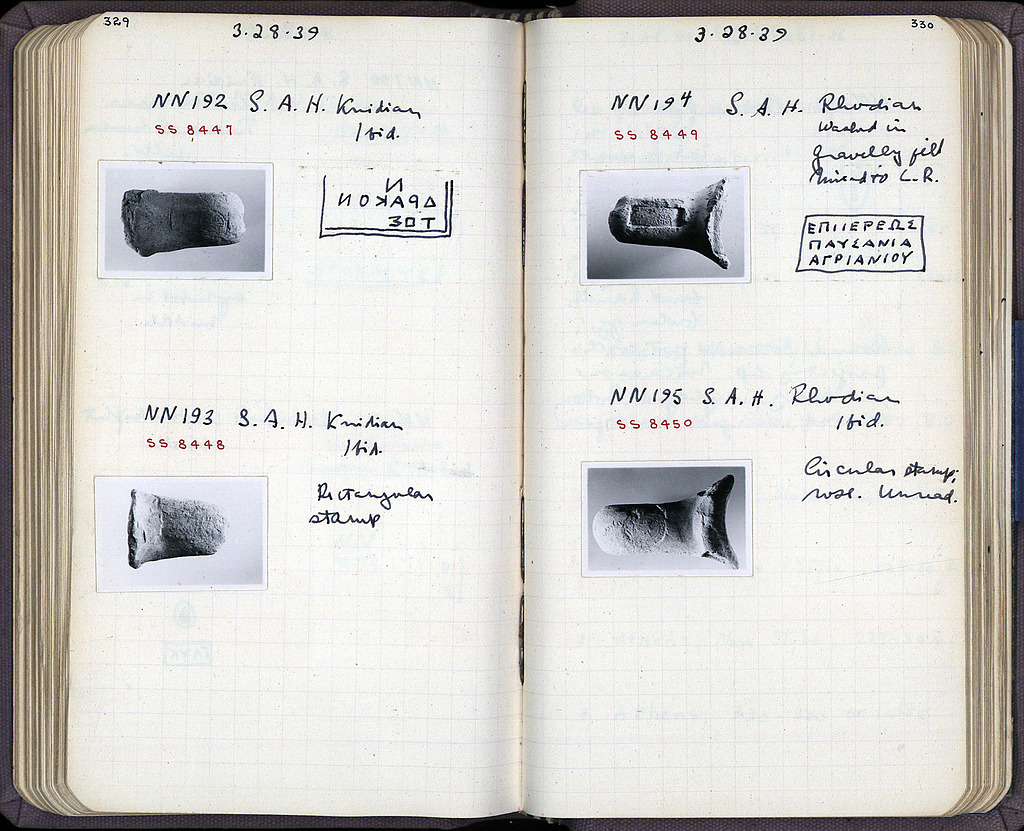 329
3·28·39
NN192 S. A. H. Knidian
SS 8447
Ibid.
И
ИОКАΡΔ
ΤΟΞ
NN193 S. A. H. Knidian
SS 8448
Ibid.
Rectangular
stamp
330
3·28·39
NN194 S. A. H. Rhodian
SS 8449
Washed in
gravelly fill
L.R.
ΕΠΙΙΕΡΕΩΣ
ΠΑΥΣΑΝΙΑ
ΑΓΡΙΑΝΙΟΥ
NN195 S. A. H. Rhodian
SS 8450
Ibid.
Circular stamp;
rose. Unread.